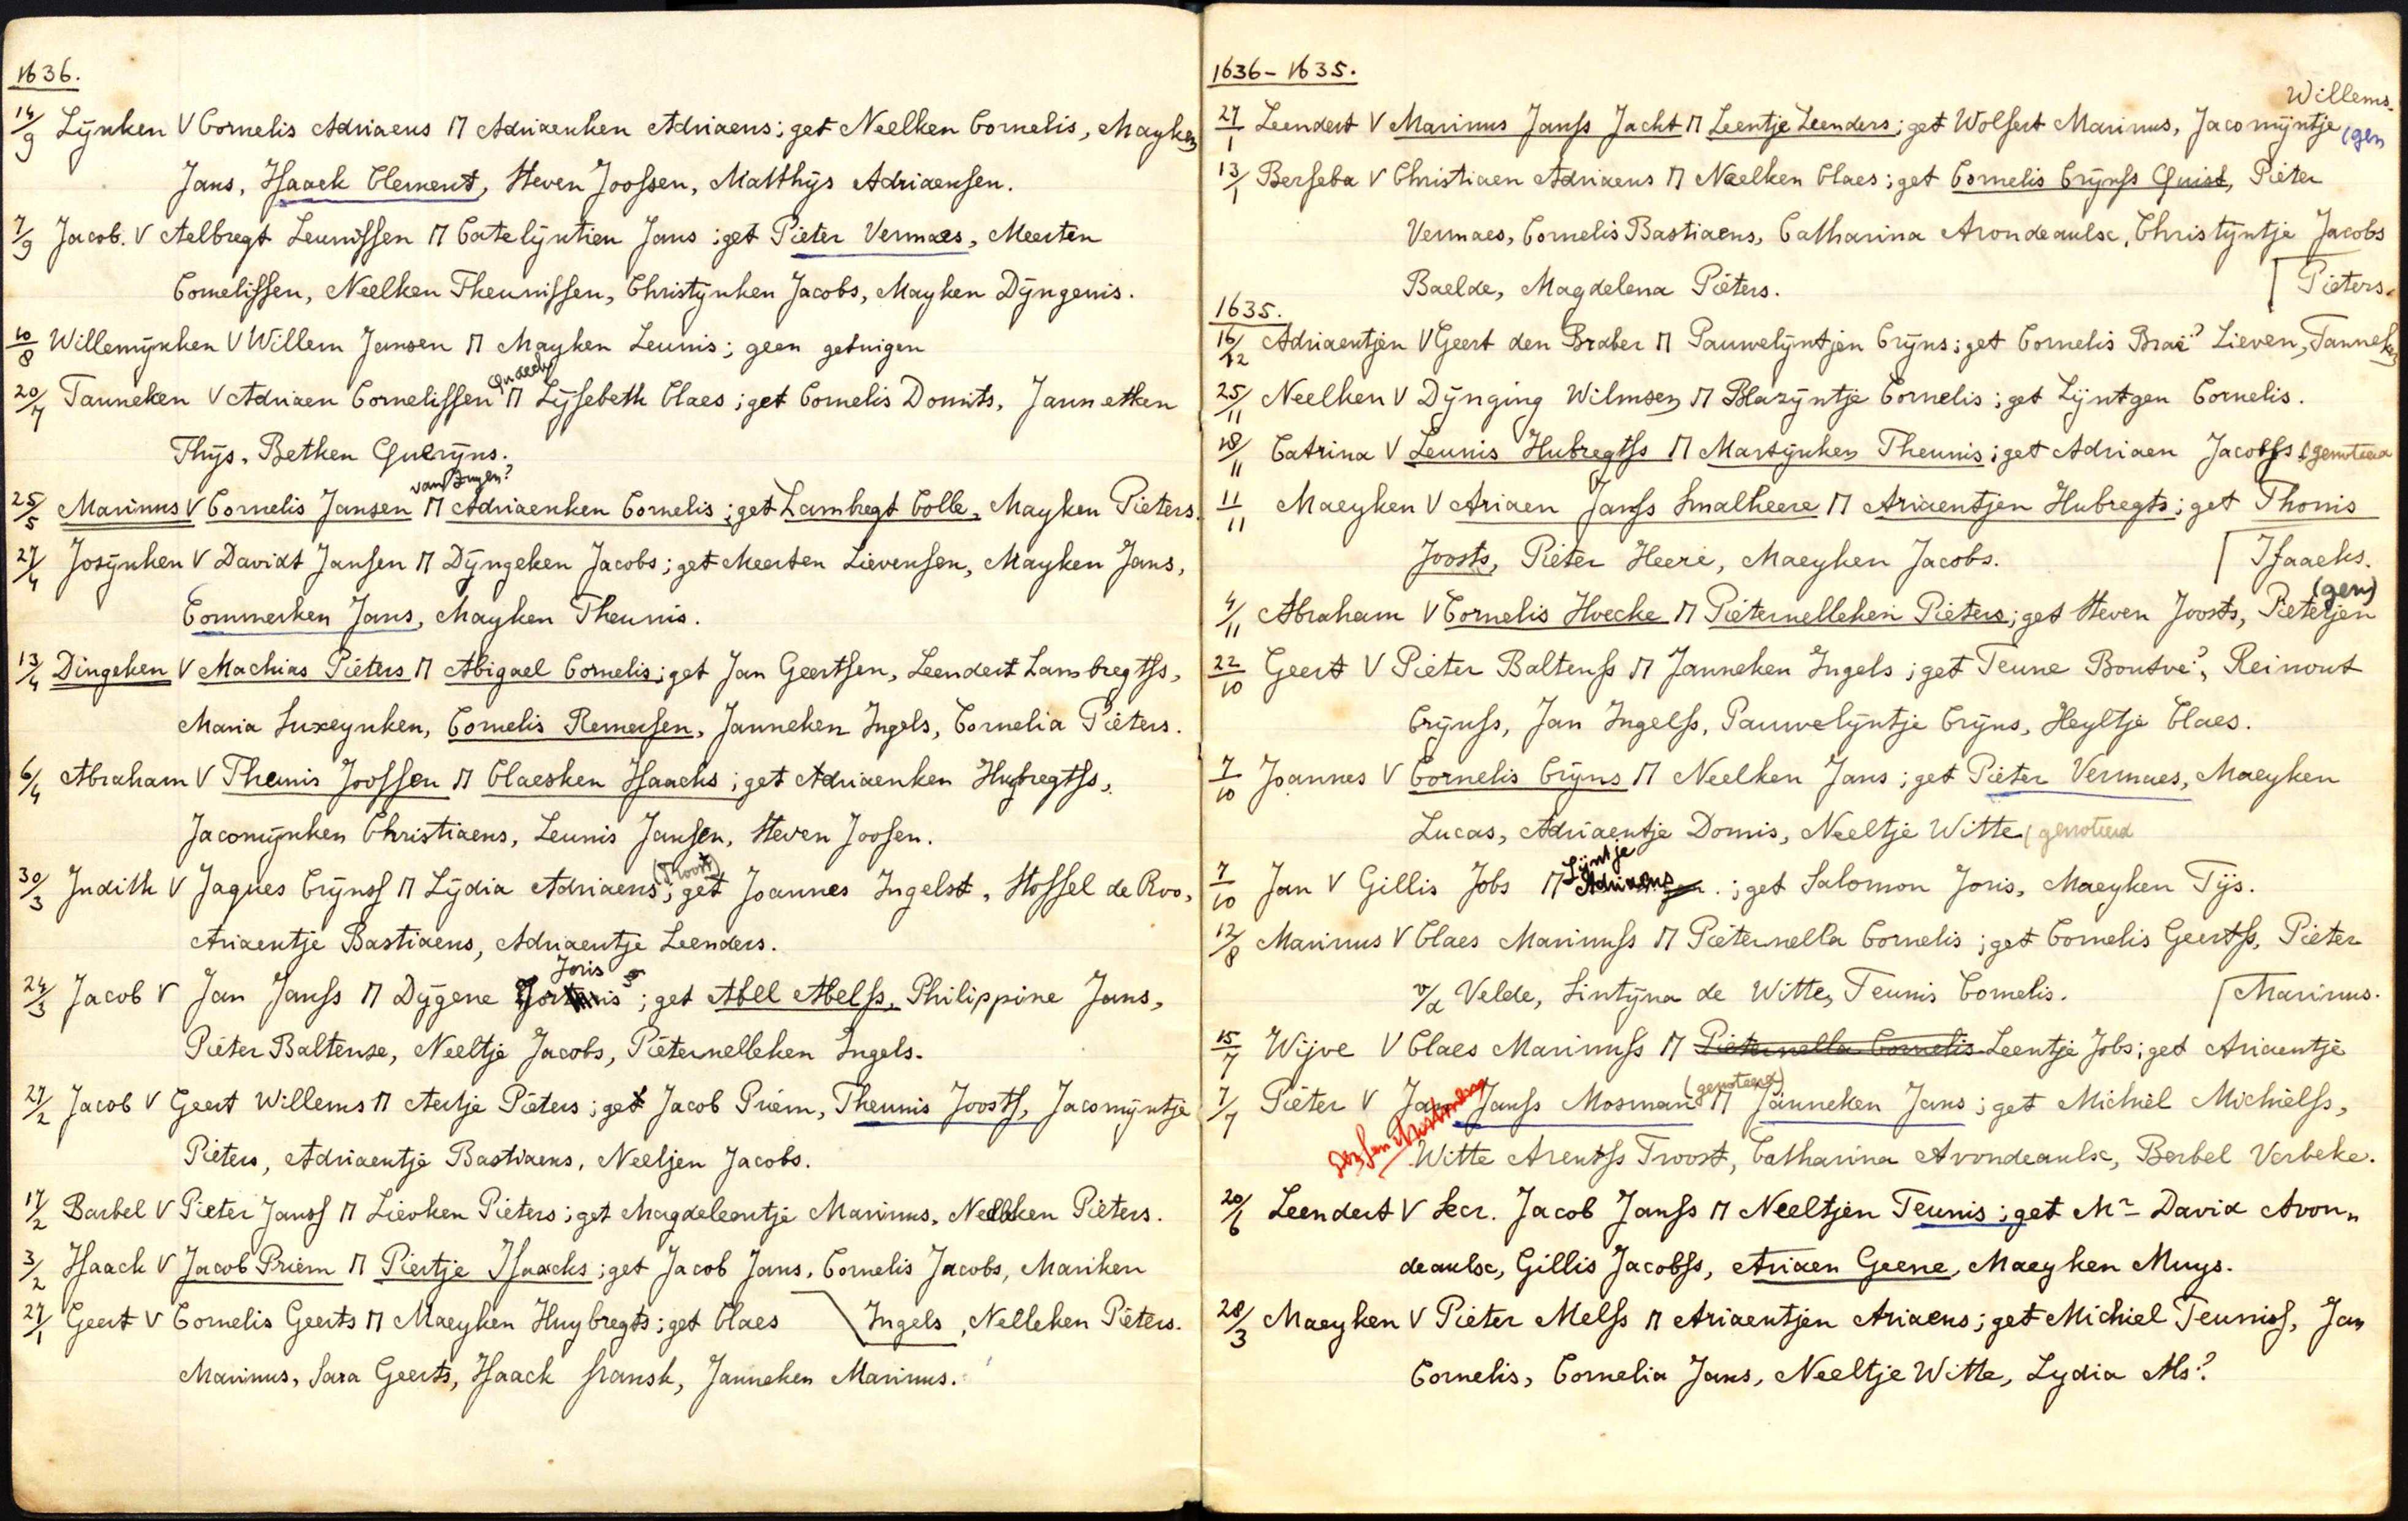 1636.
14/9 Lÿnken V Cornelis Adriaens M Adriaenken Adriaens; get Neelken Cornelis, Mayken
Jans, Isaack Clement, Steven Joossen, Matthÿs Adriaensen.
7/9 Jacob. V Aelbregt Leunissen M Catelÿntien Jans; get Pieter Vermaes, Meerten
Cornelissen, Neelken Theunissen, Christÿnken Jacobs, Mayken Dÿngenis.
10/8 Willemÿnken V Willem Jansen M Mayken Leunis; geen getuigen
20/7 Tanneken V Adriaen Cornelissen M Lÿsebeth Claes; get Cornelis Domits, Jannetken
Thÿs, Betken Querÿns.
25/5 Marinus V Cornelis Jansen M Adriaenken Cornelis; get Lambregt Colle, Mayken Pieters.
27/4 Josÿnken V Davidt Jansen M Dÿngeken Jacobs; get Meerten Lievensen, Mayken Jans,
Commerken Jans, Mayken Theunis.
13/4 Dingeken V Machias Pieters M Abigael Cornelis; get Jan Geertsen, Leendert Lambregtss,
Maria Luxeynken, Cornelis Remeesen, Janneken Ingels, Cornelia Pieters.
6/4 Abraham V Theunis Joossen M Claesken Isaacks; get Adriaenken Hubregtss,
Jacomÿnken Christiaens, Leunis Jansen, Steven Joosen.
30/3 Judith V Jaques Crÿnss M Lÿdia Adriaens (Troost); get Joannes Ingelst, Stoffel de Roo,
Ariaentje Bastiaens, Adriaentje Leenders.
24/3 Jacob V Jan Janss M Dÿgene Joris; get Abel Abelss, Philippine Jans,
Pieter Baltense, Neeltje Jacobs, Pieternelleken Ingels.
27/2 Jacob V Geert Willems M Aeltje Pieters; get Jacob Priem, Theunis Joosts, Jacomÿntje
Pieters, Adriaentje Bastiaens, Neeltjen Jacobs.
17/2 Barbel V Pieter Janss M Lievken Pieters; get Magdeleentje Marinus, Nelleken Pieters.
3/2 Isaack V Jacob Priem M Piertje Isaacks; get Jacob Jans, Cornelis Jacobs, Mariken
Ingels, Nelleken Pieters.
27/1 Geert V Cornelis Geerts M Maeyken Huybregts; get Claes
Marinus, Sara Geerts, Isaack fransk, Janneken Marinus.
1636-1635.
Willems.
27/1 Leendert V Marinus Janss Jacht M Leentje Leenders; get Wolfert Marinus, Jacomÿntje (gen
13/1 Berseba V Christiaen Adriaens M Neelken Claes; get Cornelis Crÿnss Quist, Pieter
Vermaes, Cornelis Bastiaens, Catharina Avondeaulse, Christÿntje Jacobs
Baelde, Magdelena Pieters.
Pieters.
1635.
16/12 Adriaentjen V Geert den Braber M Pauwelÿntjen Crÿns; get Cornelis Brae? Lieven, Tanneken
25/11 Neelken V Dÿnging Wilmsen M Blazÿntje Cornelis; get Lÿntgen Cornelis.
18/11 Catrina V Leunis Hubregtss M Martÿnken Theunis; get Adriaen Jacobss (genoteerd
11/11 Maeyken V Ariaen Janss Smalheere M Ariaentjen Hubregts; get Thonis
Joosts, Pieter Heere, Maeyken Jacobs.
Isaacks.
4/11 Abraham V Cornelis Hoecke M Pieternelleken Pieters; get Steven Joosts, Pieterjen (gen)
22/10 Geert V Pieter Baltenss M Janneken Ingels; get Teune Boutve?, Reinout
Crÿnss, Jan Ingelss, Pauwelÿntje Crÿns, Heyltje Claes.
7/10 Joannes V Cornelis Crÿns M Neelken Jans; get Pieter Vermaes, Maeyken
Lucas, Adriaentje Domis, Neeltje Witte (genoteerd
7/10 Jan V Gillis Jobs M Lijntje Adriaens; get Salomon Joris, Maeyken Tÿs.
12/8 Marinus V Claes Marinuss M Pieternella Cornelis; get Cornelis Geertss, Pieter
v/d Velde, Sintÿna de Witte, Teunis Cornelis.
Marinus.
15/7 Wijve V Claes Marinuss M Pieternella Cornelis Leentje Jobs; get Ariaentje
7/7 Pieter V Jan Janss Mosman (genoteerd) M Janneken Jans; get Michiel Michielss,
Witte Arentss Troost, Catharina Avondeaulse, Berbel Verbeke.
20/6 Leendert V Secr. Jacob Janss M Neeltjen Teunis; get Mr David Avon„
deaulse, Gillis Jacobss, Ariaen Geene, Maeyken Muys.
28/3 Maeyken V Pieter Melss M Ariaentjen Ariaens; get Michiel Teuniss, Jan
Cornelis, Cornelia Jans, Neeltje Witte, Lydia Als?